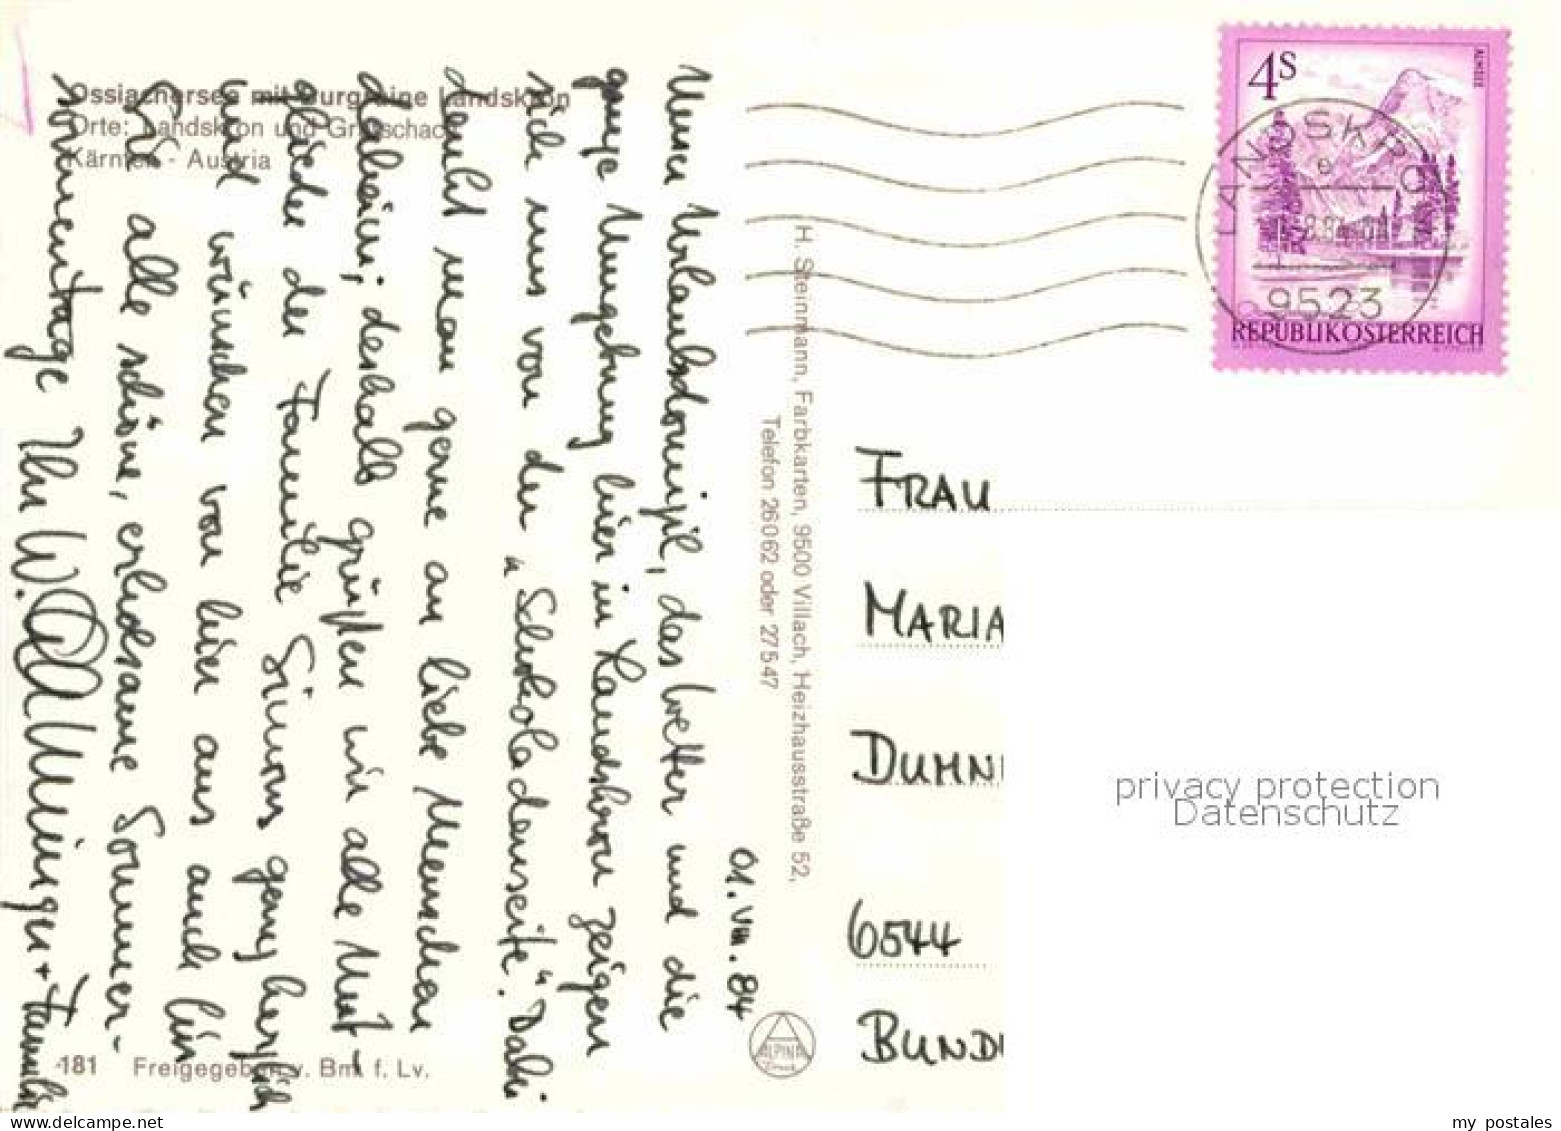 Ossiachersee mit Burgruine Landskron
Orte: Landskron und Gratschach
Kärnten - Austria
4S
ALMSEE
REPUBLIK ÖSTERREICH
LANDSKRON
e
8.84
9523
01. VIII. 84
Unser Urlaubsdomizil, das Wetter und die
ganze Umgebung hier in Landskron zeigen
sich uns von der "Schokoladenseite". Dabei
denkt man gerne an liebe Menschen
daheim; deshalb grüßen wir alle Mit-
glieder der Familie ganz herzlich
und wünschen von hier aus auch für
Sie alle schöne, erholsame Sommer-
sonnentage Ihr W. + Familie
H. Steinmann, Farbkarten, 9500 Villach, Heizhausstraße 52,
Telefon 26062 oder 27547
FRAU
MARIA
DUMN
6544
BUND
privacy protection
Datenschutz
181 Freigegeben v. Bm. f. Lv.
ALPINA
Druck
www.delcampe.net
my_postales